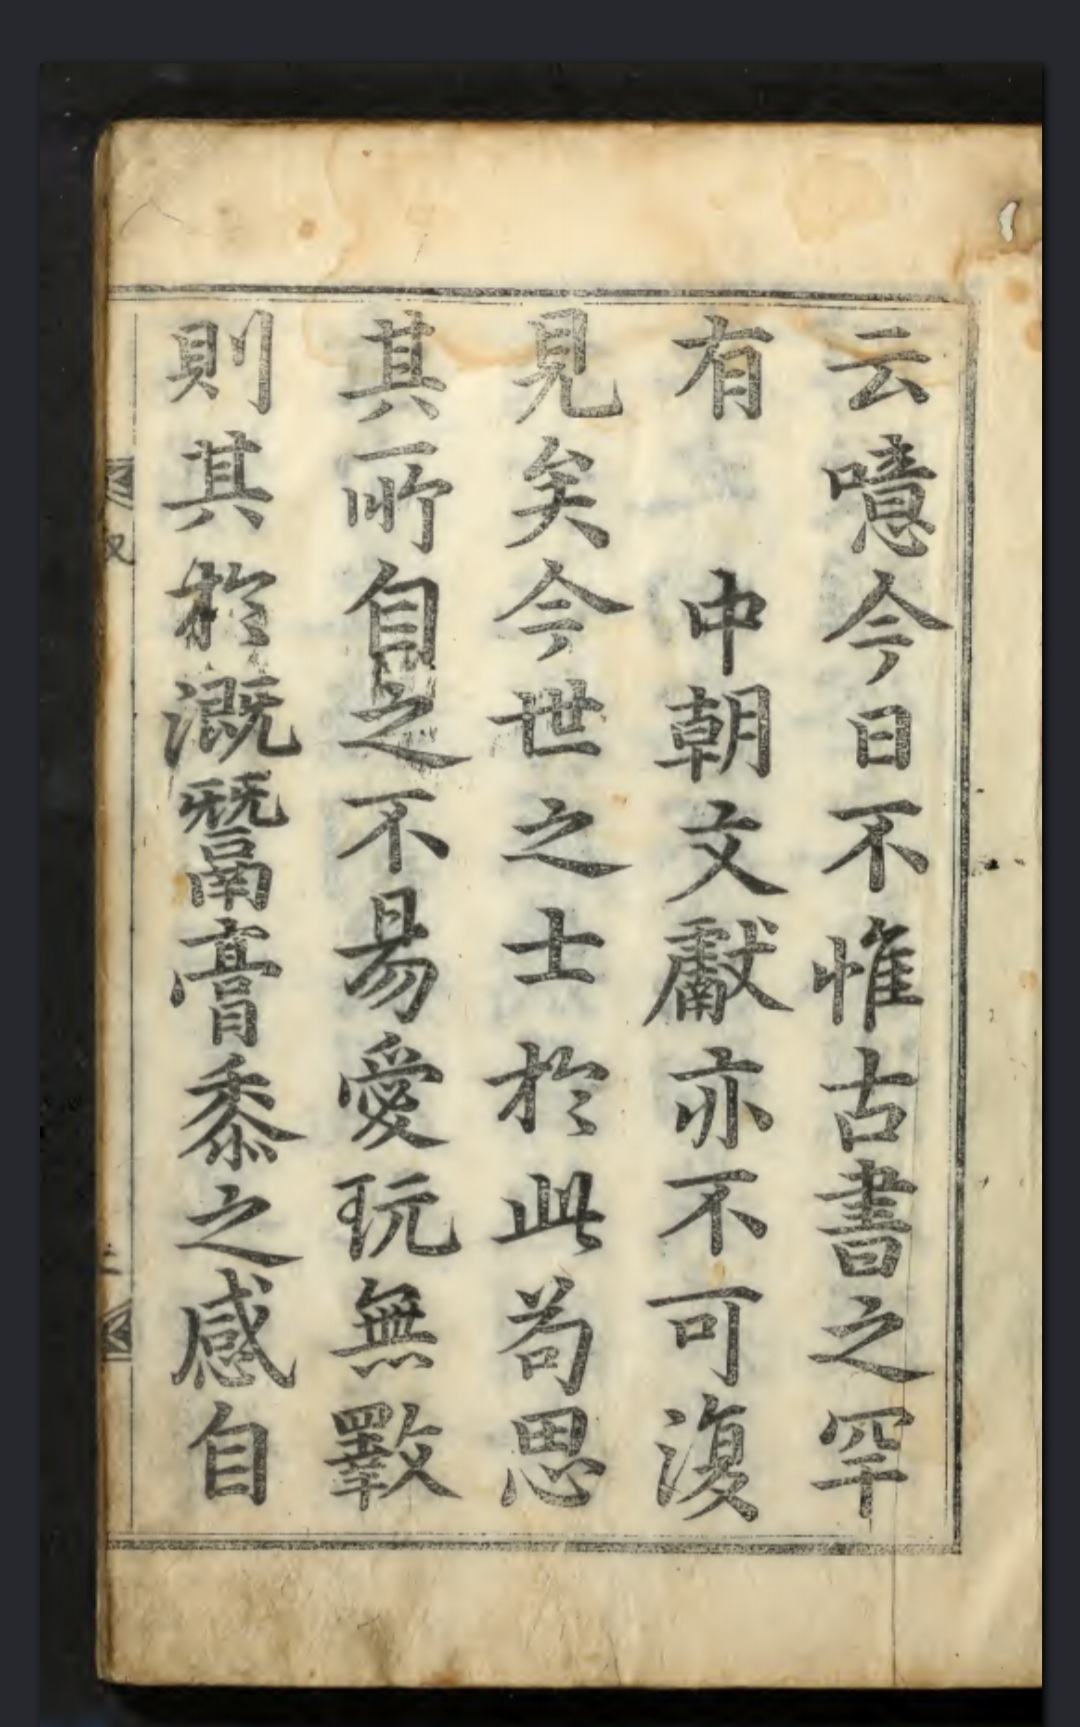 云噫今日不惟古書之罕
有　中朝文獻亦不可復
見矣今世之士於此苟思
其所自之不易愛玩無斁
則其於溉鬵膏黍之感自
跋
二